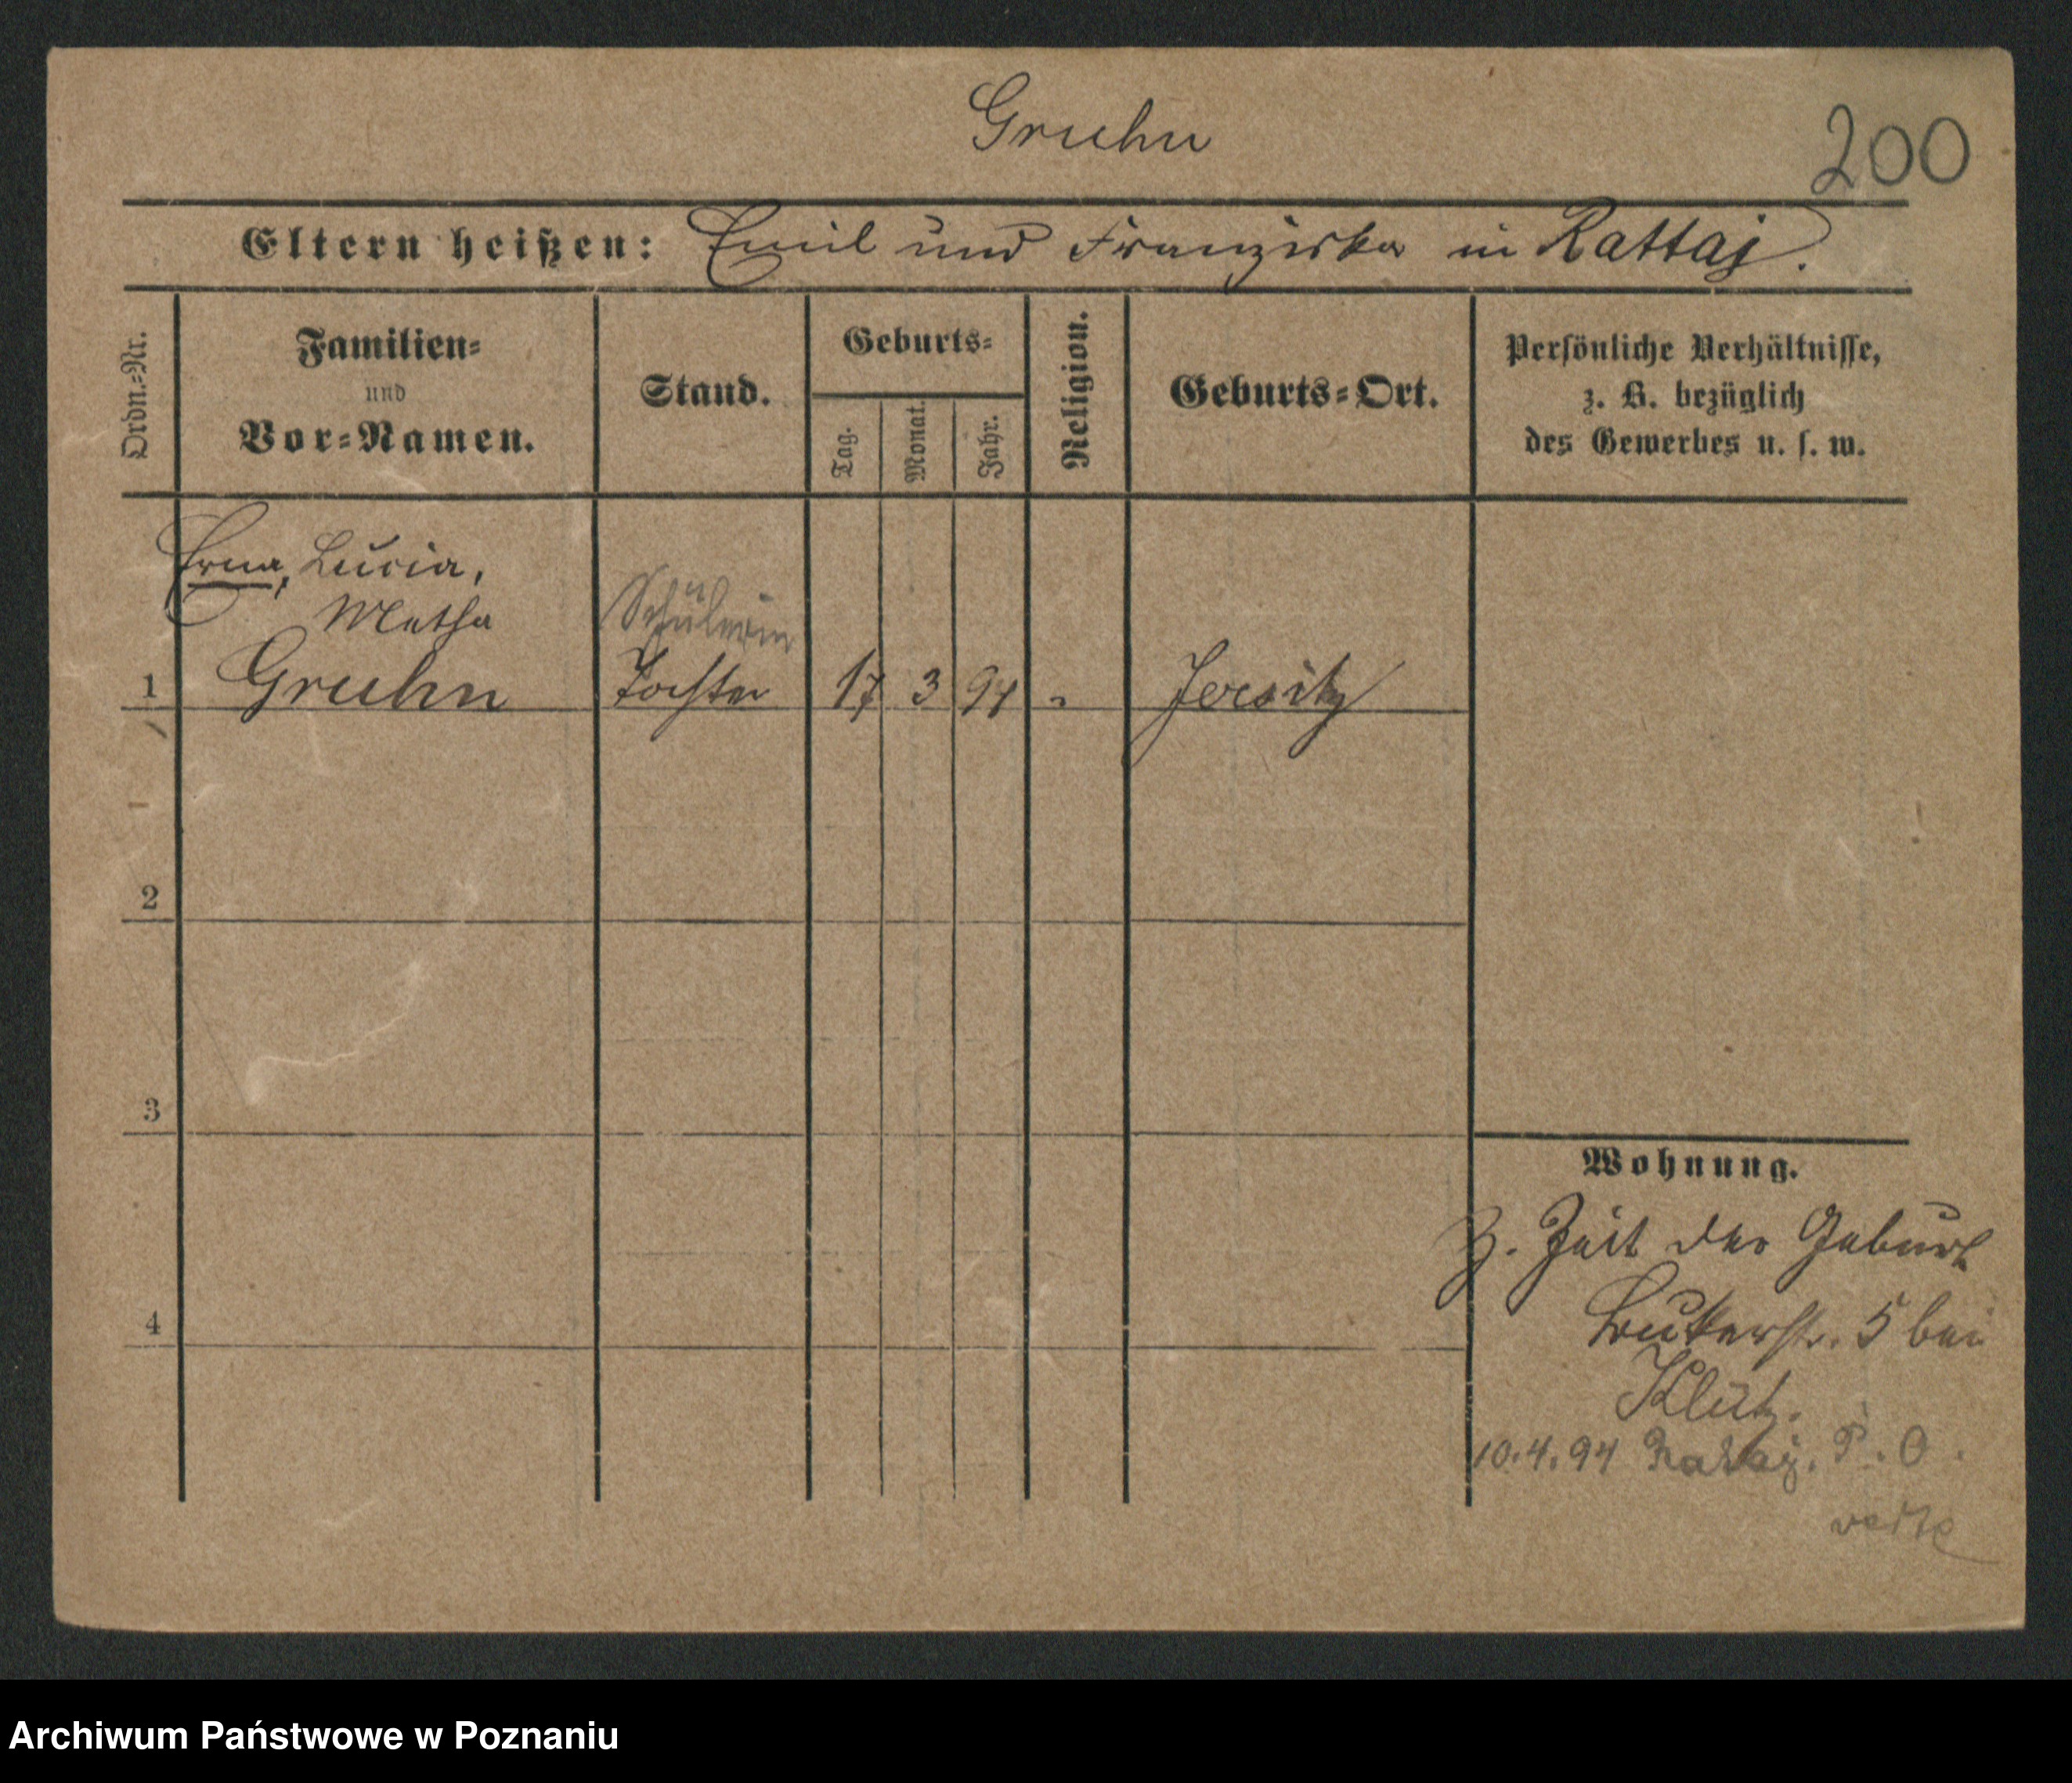 Gruhn
200
Eltern heißen: Emil und Franziska in Rattaj.
Ordn.-Nr.
Familien-
und
Vor-Namen.
Stand.
Geburts-
Tag.
Monat.
Jahr.
Religion.
Geburts-Ort.
Persönliche Verhältnisse,
z. B. bezüglich
des Gewerbes u. s. w.
Erna, Lucia,
Metha
Schülerin
1 Gruhn Tochter 17 3 94 Jersitz
2
3
4
Wohnung.
Z. Zeit der Geburt
5 bei
Klütz.
10.4.94 Rataj. P. O.
verte
Archiwum Państwowe w Poznaniu